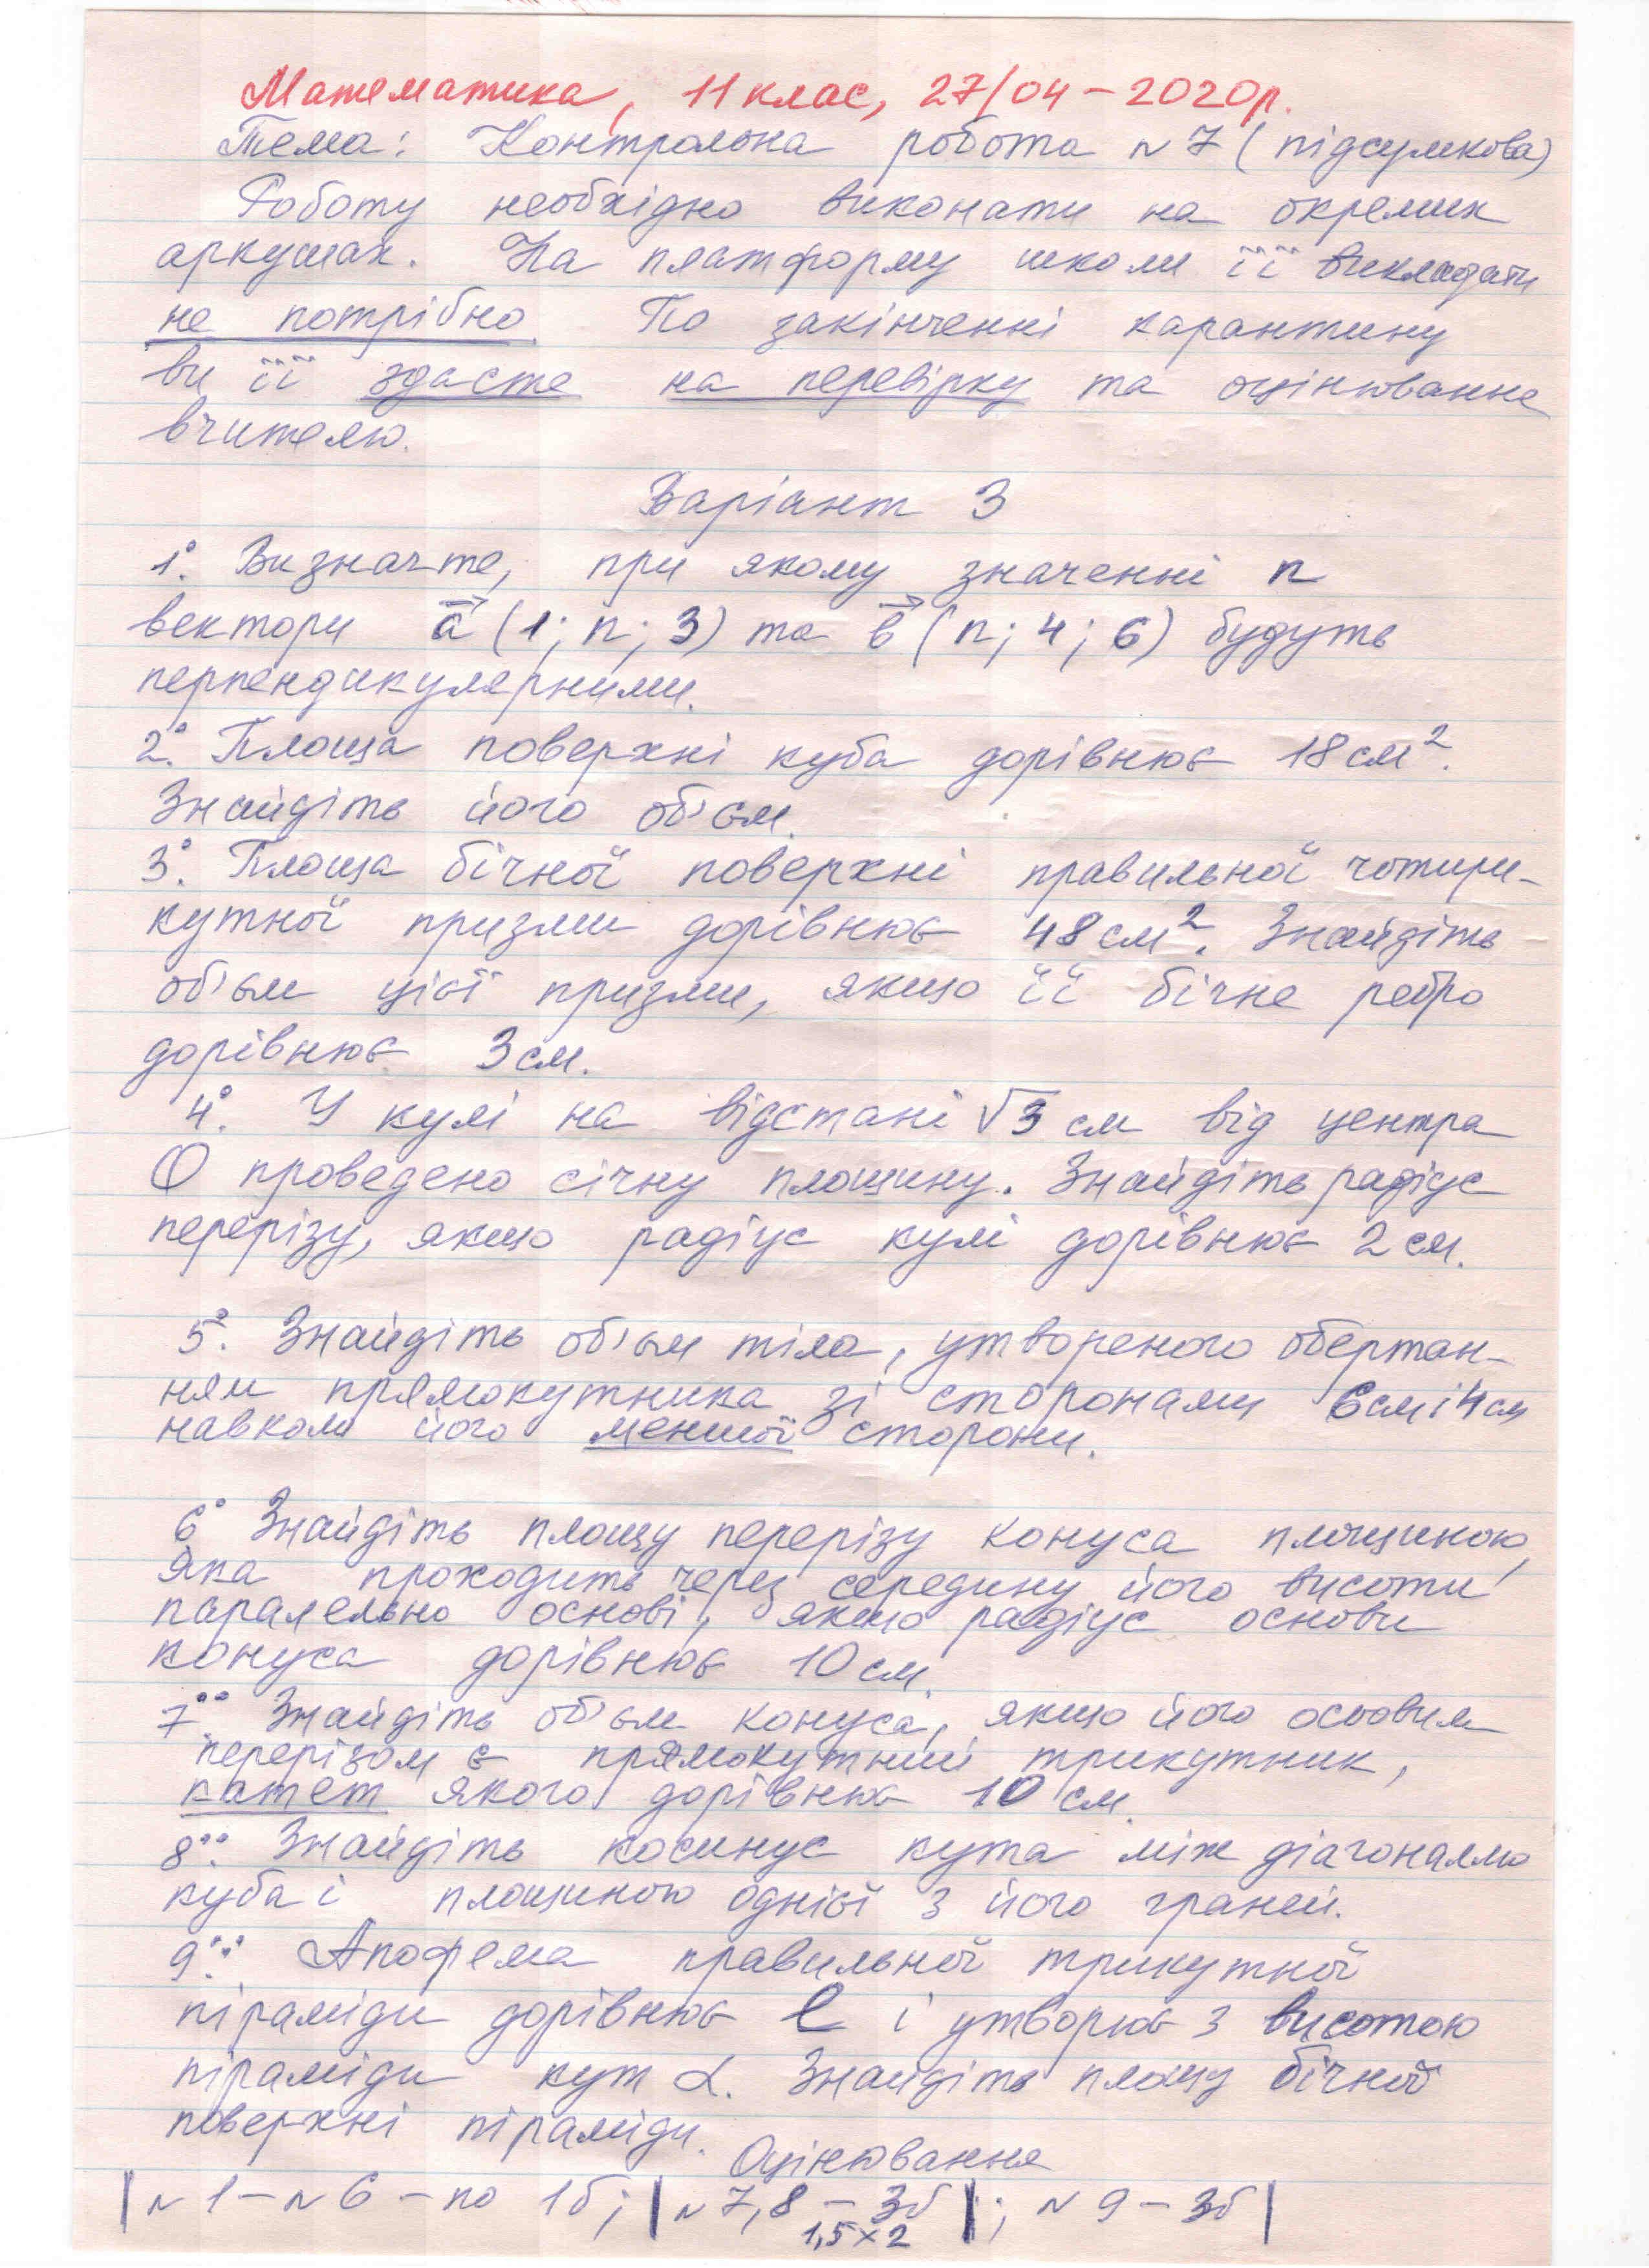 Математика, 11 клас, 27/04 - 2020р.
Тема: Контрольна робота №7 (підсумкова)
Роботу необхідно виконати на окремих
аркушах. На платформу школи її викладати
не потрібно. По закінченні карантину
ви її здасте на перевірку та оцінювання
вчителю.
Варіант 3
1°. Визначте, при якому значенні n
вектори a⃗ (1; n; 3) та b⃗ (n; 4; 6) будуть
перпендикулярними.
2°. Площа поверхні куба дорівнює 18 см².
Знайдіть його об'єм.
3°. Площа бічної поверхні правильної чотири-
кутної призми дорівнює 48 см². Знайдіть
об'єм цієї призми, якщо її бічне ребро
дорівнює 3 см.
4°. У кулі на відстані √3 см від центра
О проведено січну площину. Знайдіть радіус
перерізу, якщо радіус кулі дорівнює 2 см.
5°. Знайдіть об'єм тіла, утвореного обертан-
ням прямокутника зі сторонами 6 см і 4 см
навколо його меншої сторони.
6° Знайдіть площу перерізу конуса площиною,
яка проходить через середину його висоти
паралельно основі, якщо радіус основи
конуса дорівнює 10 см.
7°°. Знайдіть об'єм конуса, якщо його осьовим
перерізом є прямокутний трикутник,
катет якого дорівнює 10 см.
8°°. Знайдіть косинус кута між діагоналлю
куба і площиною однієї з його граней.
9°°°. Апофема правильної трикутної
піраміди дорівнює l і утворює з висотою
піраміди кут α. Знайдіть площу бічної
поверхні піраміди.
Оцінювання
| №1 – №6 – по 1б; | №7, 8 – 3б |; №9 – 3б |
1,5×2